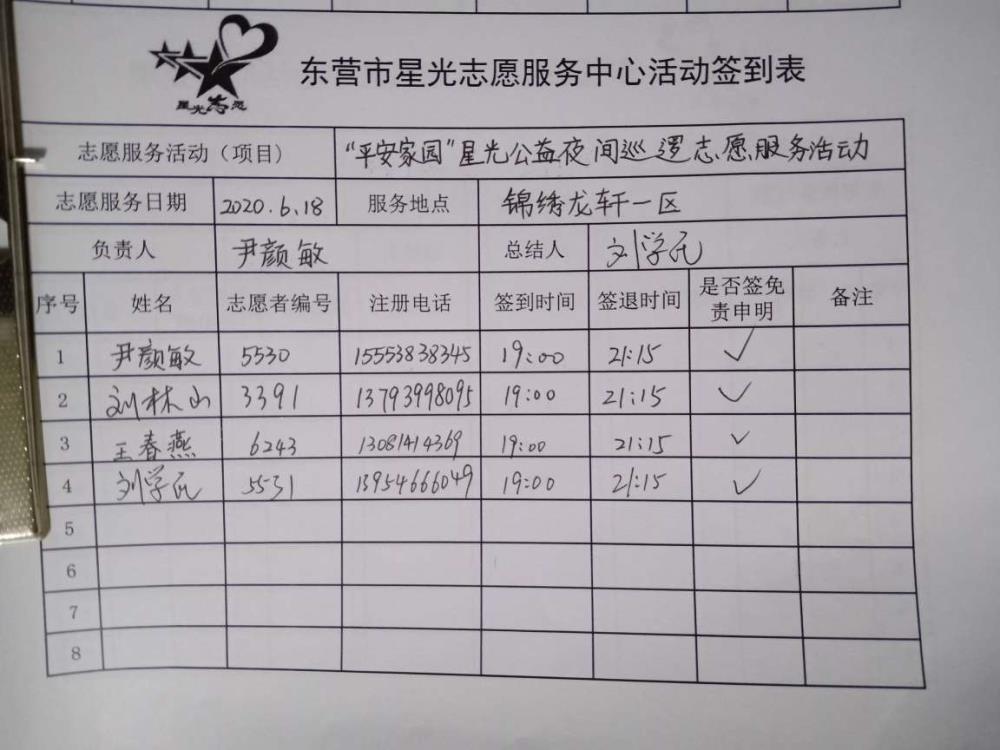 星光志愿
东营市星光志愿服务中心活动签到表
志愿服务活动（项目） “平安家园”星光公益夜间巡逻志愿服务活动
志愿服务日期 2020.6.18 服务地点 锦绣龙轩一区
负责人 尹颜敏 总结人 刘学
序号 姓名 志愿者编号 注册电话 签到时间 签退时间 是否签免
责申明 备注
1 尹颜敏 5530 15553838345 19:00 21:15 ✓
2 刘林山 3391 13793998095 19:00 21:15 ✓
3 王春燕 6243 13081414369 19:00 21:15 ✓
4 刘学 5531 13954666049 19:00 21:15 ✓
5
6
7
8